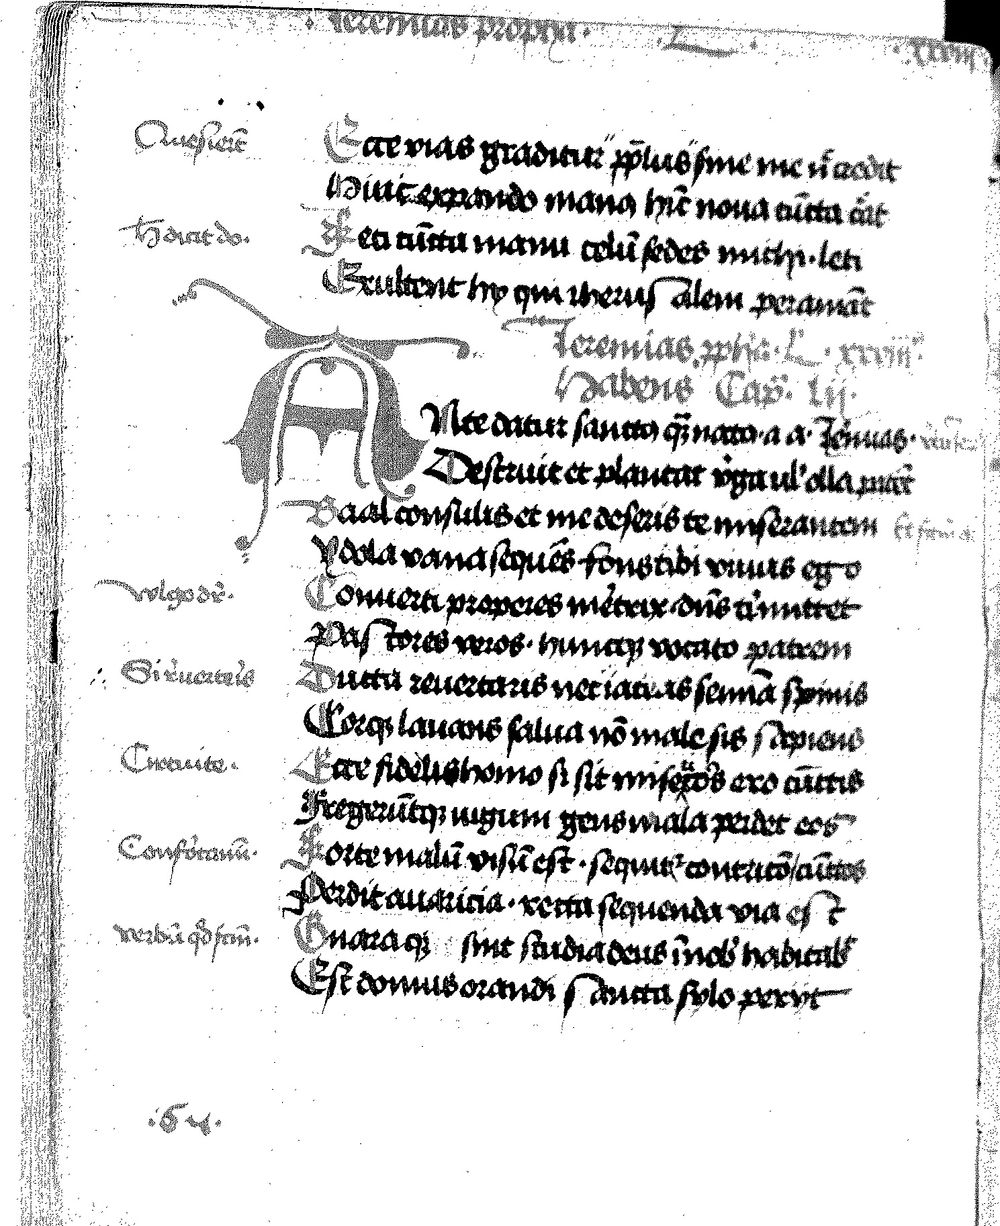 Jeremias propha · L · xxviii
Quesiert̄ Ecce vias graditur pp̄lus sine me n̄ credit
Huic expando manus hic noua cūcta cāt
H̄ dicit do. Feci cūcta manu celū sedes michi · leti
Exultent hy qui iherusalem peramāt
Jeremias pph̄a · L · xxviii
Habens Cap. lij ·
ANte datur sancto q̄ nato · a a · Jeremias ·
Destruit et plantat v̄ga ul' olla
Baal consulis et me deseris te miserantem
Ydola vana sequēs fons tibi viuus ego
vulgo dr̄. Conuerti properes meretrix dn̄s
Pastores veros · huncq; vocato patrem
Si reuerteris Ducta reuertaris nec iacias semina spinis
Corq; lauans salua nō male sis sapiens
Circuite. Ecce fidelis homo si sit ero cūctis
Fregerūtq; iugum gens mala perdet eos
Confortamī. Forte malū visū est · sequitur contricō cūctos
Perdit auaricia · recta sequenda via est
verbū qd̄ fcm̄. Gnaraq; sint studia deus
Est domus orandi sancta sylo peryt